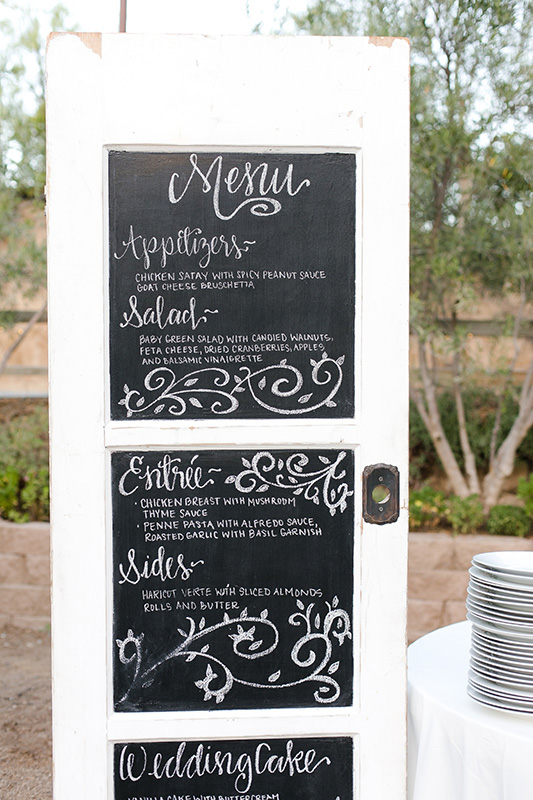 Menu
Appetizers~
CHICKEN SATAY WITH SPICY PEANUT SAUCE
GOAT CHEESE BRUSCHETTA
Salad~
BABY GREEN SALAD WITH CANDIED WALNUTS,
FETA CHEESE, DRIED CRANBERRIES, APPLES
AND BALSAMIC VINAIGRETTE
Entrée~
• CHICKEN BREAST WITH MUSHROOM
THYME SAUCE
• PENNE PASTA WITH ALFREDO SAUCE,
ROASTED GARLIC WITH BASIL GARNISH
Sides~
HARICOT VERTE WITH SLICED ALMONDS
ROLLS AND BUTTER
Wedding Cake~
VANILLA CAKE WITH BUTTERCREAM